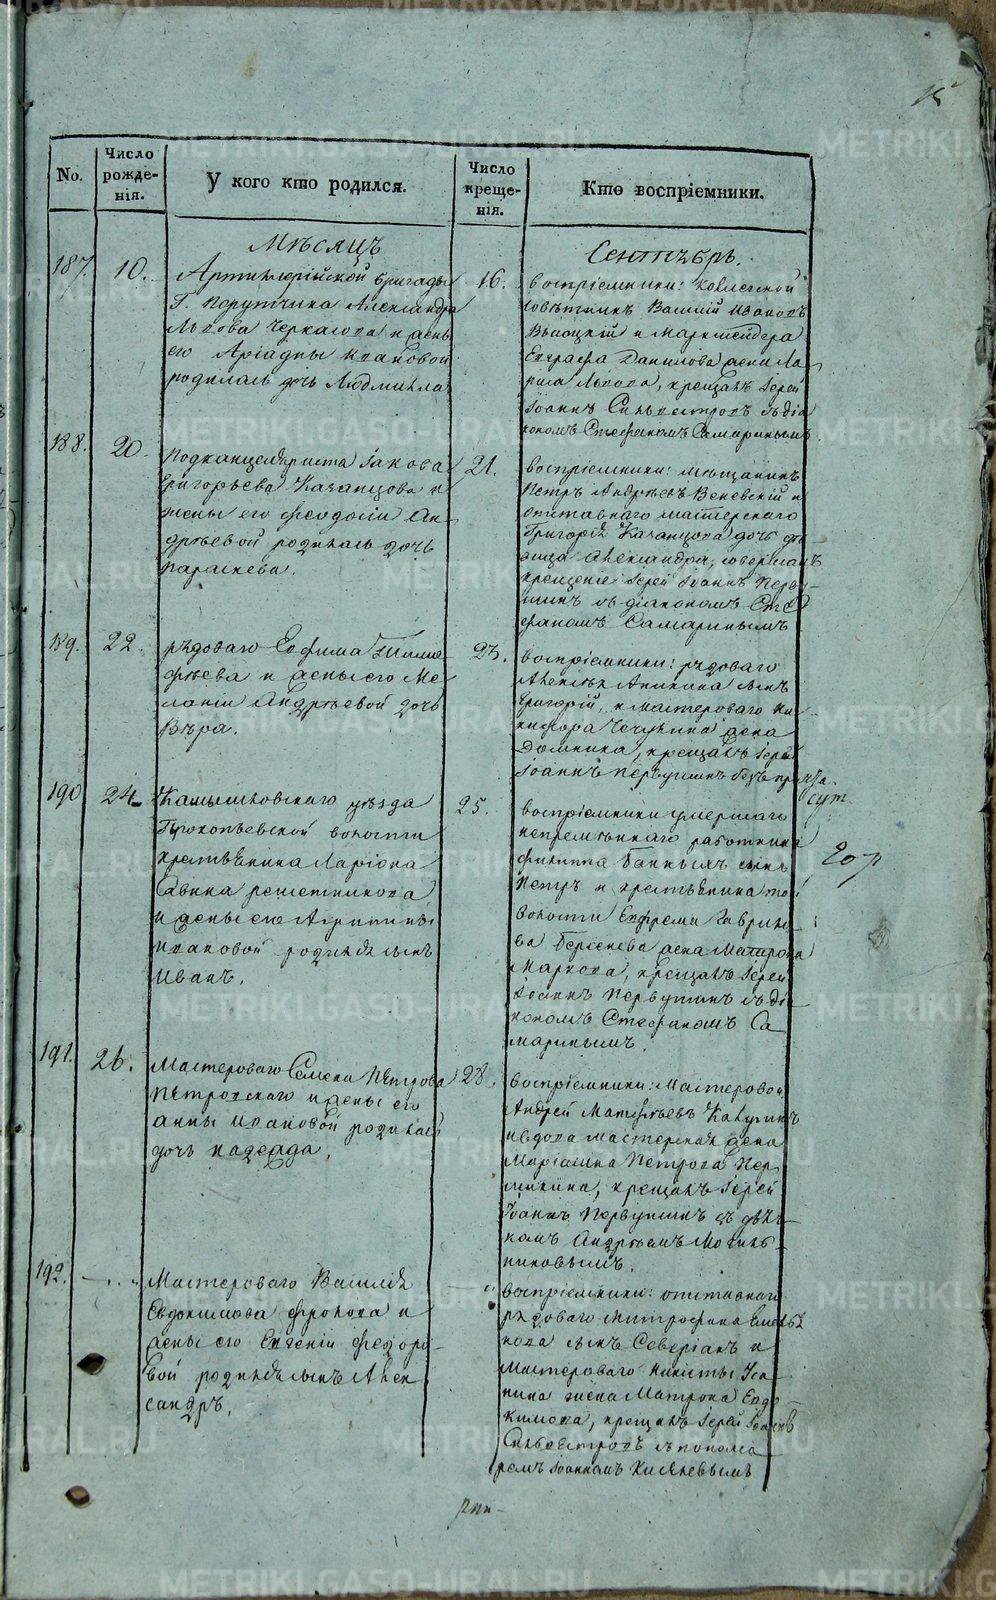 No.
Число рожде-нія.
У кого кто родился.
Число креще-нія.
Кто воспріемники.
Мѣсяцъ
Сентябрь.
187.
10.
Артиллерійской бригады
Г. Порутчика Александра
Львова Черкасова и жены
его Аріадны Ивановой
родилась дочь Людмила
16.
воспріемники: коллежской
совѣтникъ Василій Ивановъ
и Маркшейдера
Данилова жена Ла-
риса Львова, крещалъ Іерей
Іоаннъ Сильвестровъ съ діа
кономъ Стефаномъ Самаринымъ
188.
20.
Подканцеляриста Іакова
Григорьева Казанцова и
жены его Феодосіи Ан-
дрѣевой родилась дочь
Параскева.
21.
воспріемники: мѣщанинъ
Петръ Андрѣевъ Веневскій и
отставнаго мастерскаго
Григорія Казанцова дочь дѣ-
вица Александра, совершалъ
крещеніе Іерей Іоаннъ Перву-
шинъ съ діакономъ Сте
фаномъ Самаринымъ
189.
22.
рядоваго Ефима Тимо-
фѣева и жены его Ме-
ланіи Андрѣевой дочь
Вѣра.
23.
воспріемники: рядоваго
Алексѣя Аникина сынъ
Григорій, и мастероваго Ни-
кифора жена
Домника, крещалъ Іерей
Іоаннъ Первушинъ безъ
190
24
Камышловскаго уѣзда
Прокопьевской волости
крестьянина Ларіона
Савина Решетникова
и жены его Агрипины
Ивановой родился сынъ
Иванъ.
25.
воспріемники умершаго
непремѣннаго работника
Филиппа Банныхъ сынъ
Петръ и крестьянина той
волости Ефрема Гаврило-
ва жена Матрона
Маркова, крещалъ Іерей
Іоаннъ Первушинъ съ діа-
кономъ Стефаномъ Са-
маринымъ.
191.
26.
Мастероваго Семена Петрова
Петровскаго и жены его
Анны Ивановой родилась
дочь Надежда.
28.
воспріемники: Мастеровой
Андрей Матфѣевъ
и вдова мастерская жена
Маріамна Петрова Пер-
шина, крещалъ Іерей
Іоаннъ Первушинъ съ дьяч-
комъ Андрѣемъ
192.
Мастероваго Василія
Евдокимова Фролова и
жены его Евгеніи Федоро-
вой родился сынъ Алек-
сандръ.
воспріемники: отставнаго
рядоваго Митрофана
сынъ Северіанъ и
Мастероваго Никиты
жена Матрона Евдо-
кимова, крещалъ Іерей Іоаннъ
Сильвестровъ съ понома-
ремъ Іоанномъ
METRIKI.GASO-URAL.RU